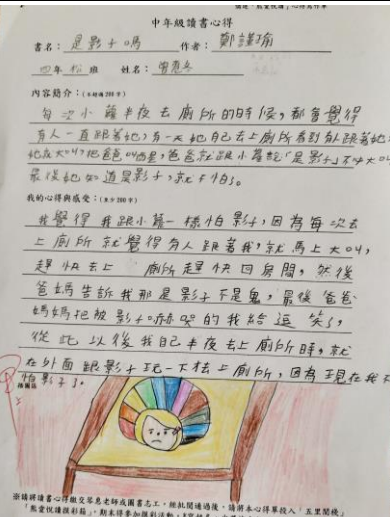 中年級讀書心得
書名：是影子嗎 作者：鄭謹瑜
四年 班 姓名：曾
內容簡介：(不超過200字)
每次小蘿半夜去廁所的時候，都會覺得
有人一直跟著她，有一天她自己去上廁所看到有人跟著她
她在大叫，把爸爸叫醒，爸爸就跟小蘿說「是影子」不大叫
最後她知道是影子，就不怕了。
我的心得與感受：(至少200字)
我覺得我跟小蘿一樣怕影子，因為每次去
上廁所就覺得有人跟著我，就馬上大叫，
趕快去上 廁所趕快回房間，然後
爸媽告訴我那是影子不是鬼，最後爸爸
媽媽把被影子嚇哭的我給逗笑了，
從此以後我自己半夜去上廁所時，就
在外面跟影子玩一下才去上廁所，因為現在我不
怕影子了。
插圖區
※請將讀書心得繳交導師或圖書志工，經批閱通過後，請將本心得單投入「五里閱橋」
「熊愛悅讀摸彩箱」，期末得參加摸彩活動。